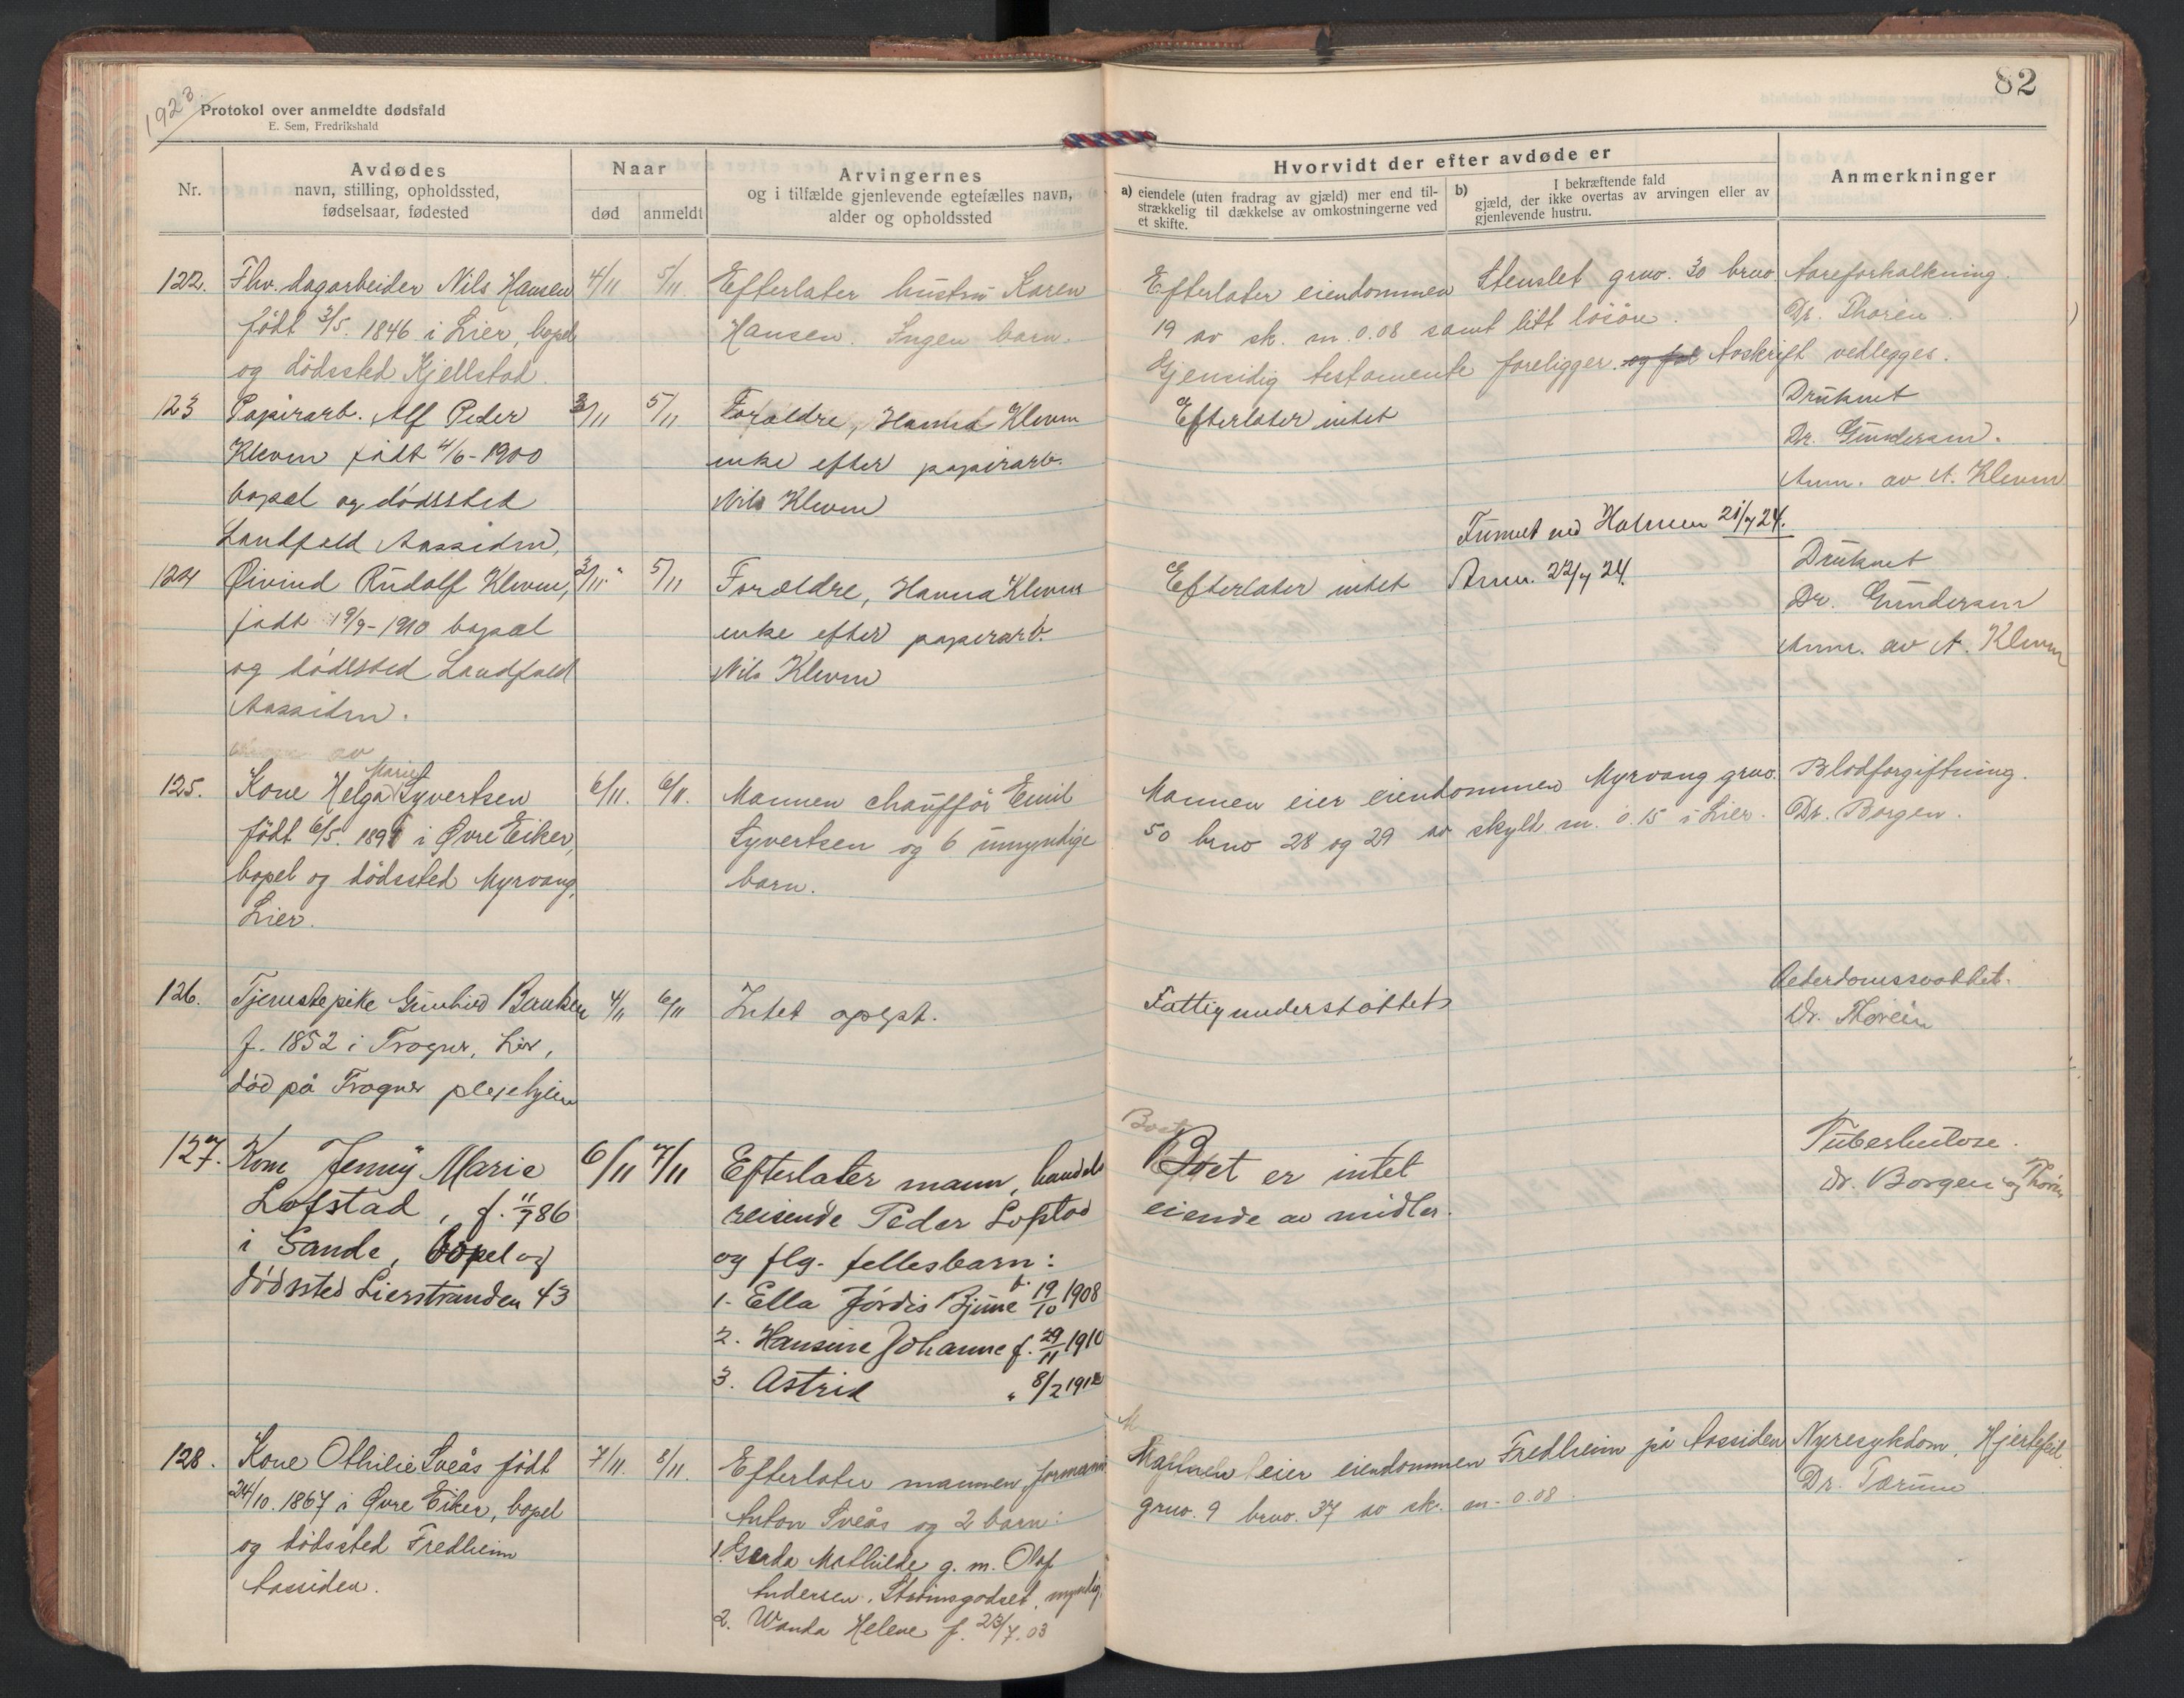 82
1923
Protokol over anmeldte dødsfald
E. Sem, Fredrikshald
Nr.
Avdødes
navn, stilling, opholdssted,
fødselsaar, fødested
Naar
død
anmeldt
Arvingernes
og i tilfælde gjenlevende egtefælles navn,
alder og opholdssted
Hvorvidt der efter avdøde er
a) eiendele (uten fradrag av gjæld) mer end til-
strækkelig til dækkelse av omkostningerne ved
et skifte.
b) I bekræftende fald
gjæld, der ikke overtas av arvingen eller av
gjenlevende hustru.
Anmerkninger
122.
Fhv. dagarbeider Nils Hansen
født 3/5. 1846 i Lier, bopel
og dödssted Kjellstad.
4/11
5/11
Efterlater hustru Karen
Hansen. Ingen barn.
Efterlater eiendommen Stenslet gruo. 30 bruo.
19 av sk. m. 0.08 samt litt lösöre.
Gjensidig testamente foreligger. og fol Avskrift vedlegges.
Aareforkalkning.
Dr. Thorén.
123
Papirarb. Alf Peder
Kleven født 4/6-1900
bopæl og dødssted
Landfald Aassiden,
3/11
5/11
Forældre, Hanna Kleven
enke efter papirarb.
Nils Kleven
Efterlater intet
Druknet
Dr. Gundersen.
Anm. av A. Kleven
124
Øivind Rudolf Kleven,
født 19/9-1910 bopæl
og dødssted Landfald
Aassiden.
3/11.
5/11
Forældre, Hanna Kleven
enke efter papirarb.
Nils Kleven
Efterlater intet
Funnet ved Holmen 21/7 24.
Anm. 22/7 24.
Druknet
Dr. Gundersen
Anm. av A. Kleven
av
125.
Kone Helga Marie Syvertsen
født 6/5. 189 i Øvre Eiker,
bopel og dödssted Myrvang,
Lier.
6/11.
6/11.
Mannen chauffør Emil
Syvertsen og 6 umyndige
barn.
Mannen eier eiendommen Myrvang gruo.
50 bruo 28 og 29 av skyld m. 0.15 i Lier.
Blodforgiftning.
Dr. Borgen.
126.
Tjenestepike Gunhild Bentsen
f. 1852 i Frogner, Lier,
død på Frogner pleiehjem
4/11
6/11
Intet opgit.
Fattigunderstøttet
Alderdomssvakhet.
Dr. Thorén
127.
Kone Jenny Marie
Lofstad, f. 11/7 86
i Sande, bopel og
dødssted Lierstranden 43
6/11
7/11
Efterlater mann, handels
reisende Peder Lofstad
og flg. fellesbarn:
1. Ella Jórdis Bjune f. 19/10 1908
2. Hansine Johanne f. 29/11 1910
3. Astrid " 8/2 191
Boet
Boet er intet
eiende av midler.
Tuberkulose.
Dr. Borgen og Thorén
128.
Kone Othilie Sveås født
24/10. 1867 i Øvre Eiker, bopel
og dödssted Fredheim
Aassiden.
7/11.
8/11.
Efterlater mannen, formann
Anton Sveås og 2 barn:
1. Gerda Mathilde g. m. Olaf
Andersen, Strömsgodset, myndig.
2. Wanda Helene f. 23/7. 03
M
Mannen eier eiendommen Fredheim på Aassiden
gruo. 9 bruo. 37 av sk. m. 0.08.
Nyresykdom, Hjertefeil.
Dr. Tærum